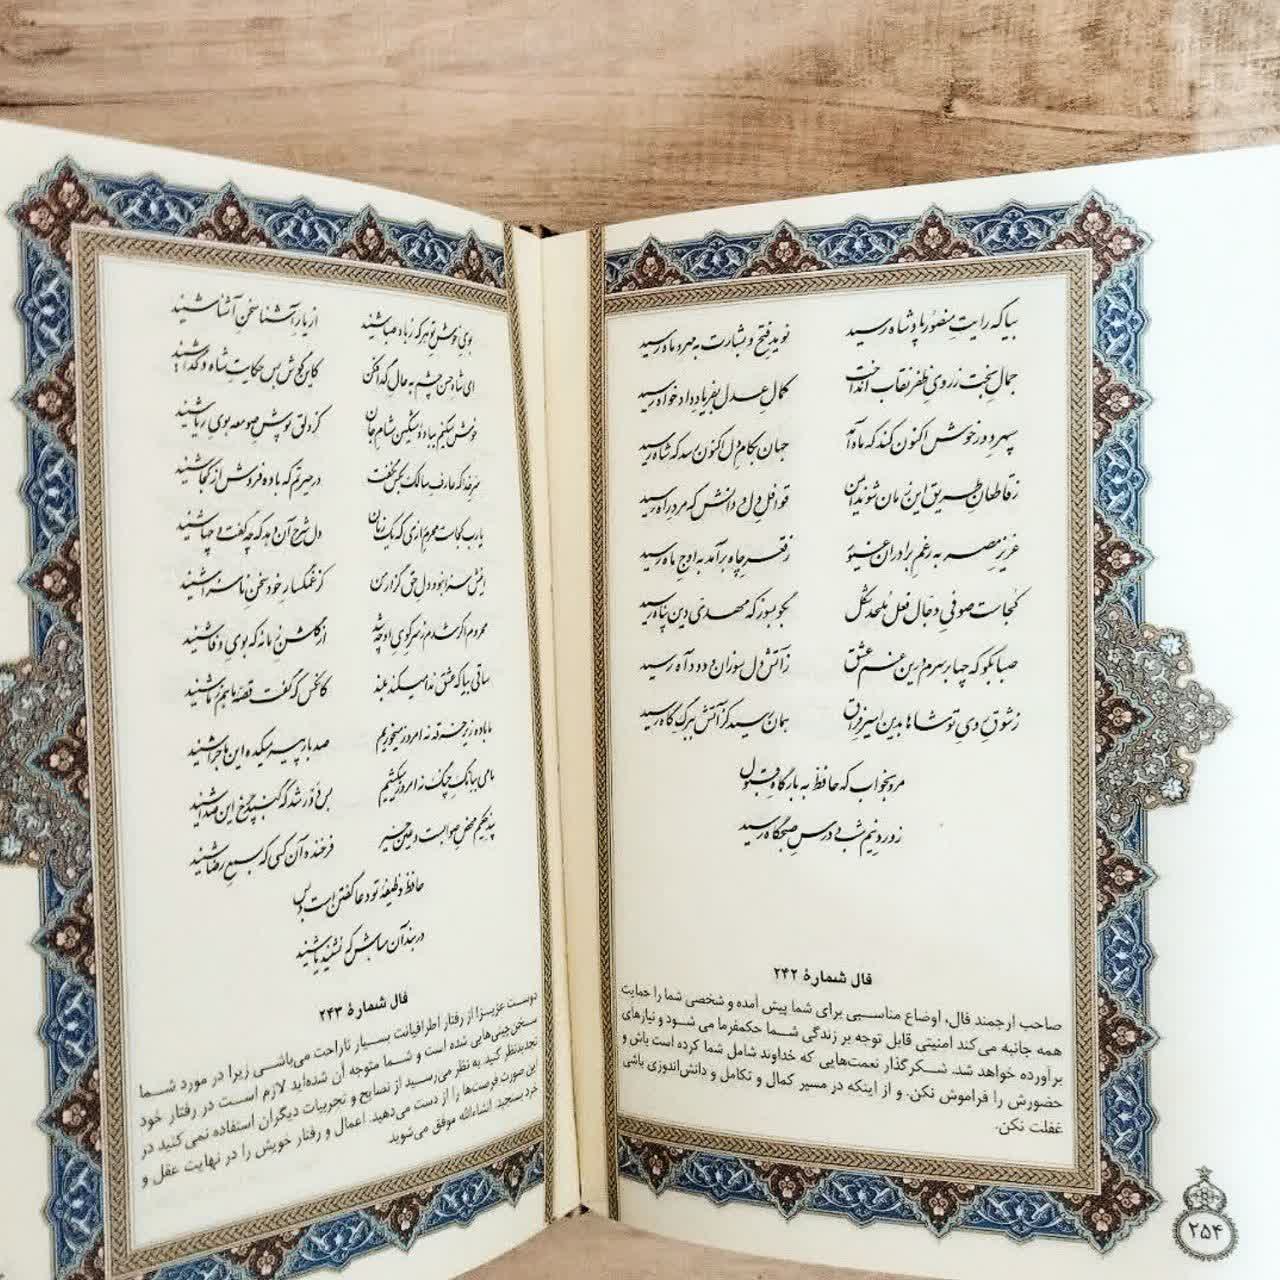 بیا که رایت منصور پادشاه رسید
نوید فتح و بشارت به مهر و ماه رسید
جمال بخت ز روی ظفر نقاب انداخت
کمال عدل بفریاد دادخواه رسید
سپهر دور خوش اکنون کند که ماه آمد
جهان بکام دل اکنون رسد که شاه رسید
ز قاطعان طریق این زمان شوند ایمن
قوافل دل و دانش که مرد راه رسید
عزیز مصر به رغم برادران غیور
ز قعر چاه برآمد به اوج ماه رسید
کجاست صوفی دجال فعل ملحد شکل
بگو بسوز که مهدی دین پناه رسید
صبا بگو که چها بر سرم درین غم عشق
ز آتش دل سوزان و دود آه رسید
ز شوق روی تو شاها بدین اسیر فراق
همان رسید کز آتش ببرگ کاه رسید
مرو بخواب که حافظ به بارگاه قبول
ز ورد نیم شب و درس صبحگاه رسید
فال شمارهٔ ۲۴۲
صاحب ارجمند فال، اوضاع مناسبی برای شما پیش آمده و شخصی شما را حمایت
همه جانبه می‌کند امنیتی قابل توجه بر زندگی شما حکمفرما می شود و نیازهای
برآورده خواهد شد. شکرگذار نعمت‌هایی که خداوند شامل شما کرده است باش و
حضورش را فراموش نکن. و از اینکه در مسیر کمال و تکامل و دانش‌اندوزی باشی
غفلت نکن.
۲۵۴
بوی خوش تو هر که ز باد صبا شنید
از یار آشنا سخن آشنا شنید
ای شاه حسن چشم به حال گدا فکن
کاین گوش بس حکایت شاه و گدا شنید
خوش میکنم بباده مشکین مشام جان
کز دلق پوش صومعه بوی ریا شنید
سر خدا که عارف سالک بکس نگفت
در حیرتم که باده فروش از کجا شنید
یارب کجاست محرم رازی که یک زمان
دل شرح آن دهد که چه گفت و چها شنید
اینش سزا نبود دل حق گزار من
کز غمگسار خود سخن ناسزا شنید
محروم اگر شدم ز سر کوی او چه شد
از گلشن زمانه که بوی وفا شنید
ساقی بیا که عشق ندا میکند بلند
کانکس که گفت قصه ما هم ز ما شنید
ما باده زیر خرقه نه امروز میخوریم
صد بار پیر میکده این ماجرا شنید
ما می ببانگ چنگ نه امروز میکشیم
بس دور شد که گنبد چرخ این صدا شنید
پند حکیم محض صوابست و عین خیر
فرخنده آن کسی که بسمع رضا شنید
حافظ وظیفه تو دعا گفتن است و بس
در بند آن مباش که نشنید یا شنید
فال شمارهٔ ۲۴۳
دوست عزیز! از رفتار اطرافیانت بسیار ناراحت می‌باشی زیرا در مورد شما
سخن‌چینی‌هایی شده است و شما متوجه آن شده‌اید لازم است در رفتار خود
تجدیدنظر کنید. به نظر می‌رسید از نصایح و تجربیات دیگران استفاده نمی‌کنید در
این صورت فرصت‌ها را از دست می‌دهید. اعمال و رفتار خویش را در نهایت عقل و
خرد بسنجید. انشاءالله موفق می‌شوید.